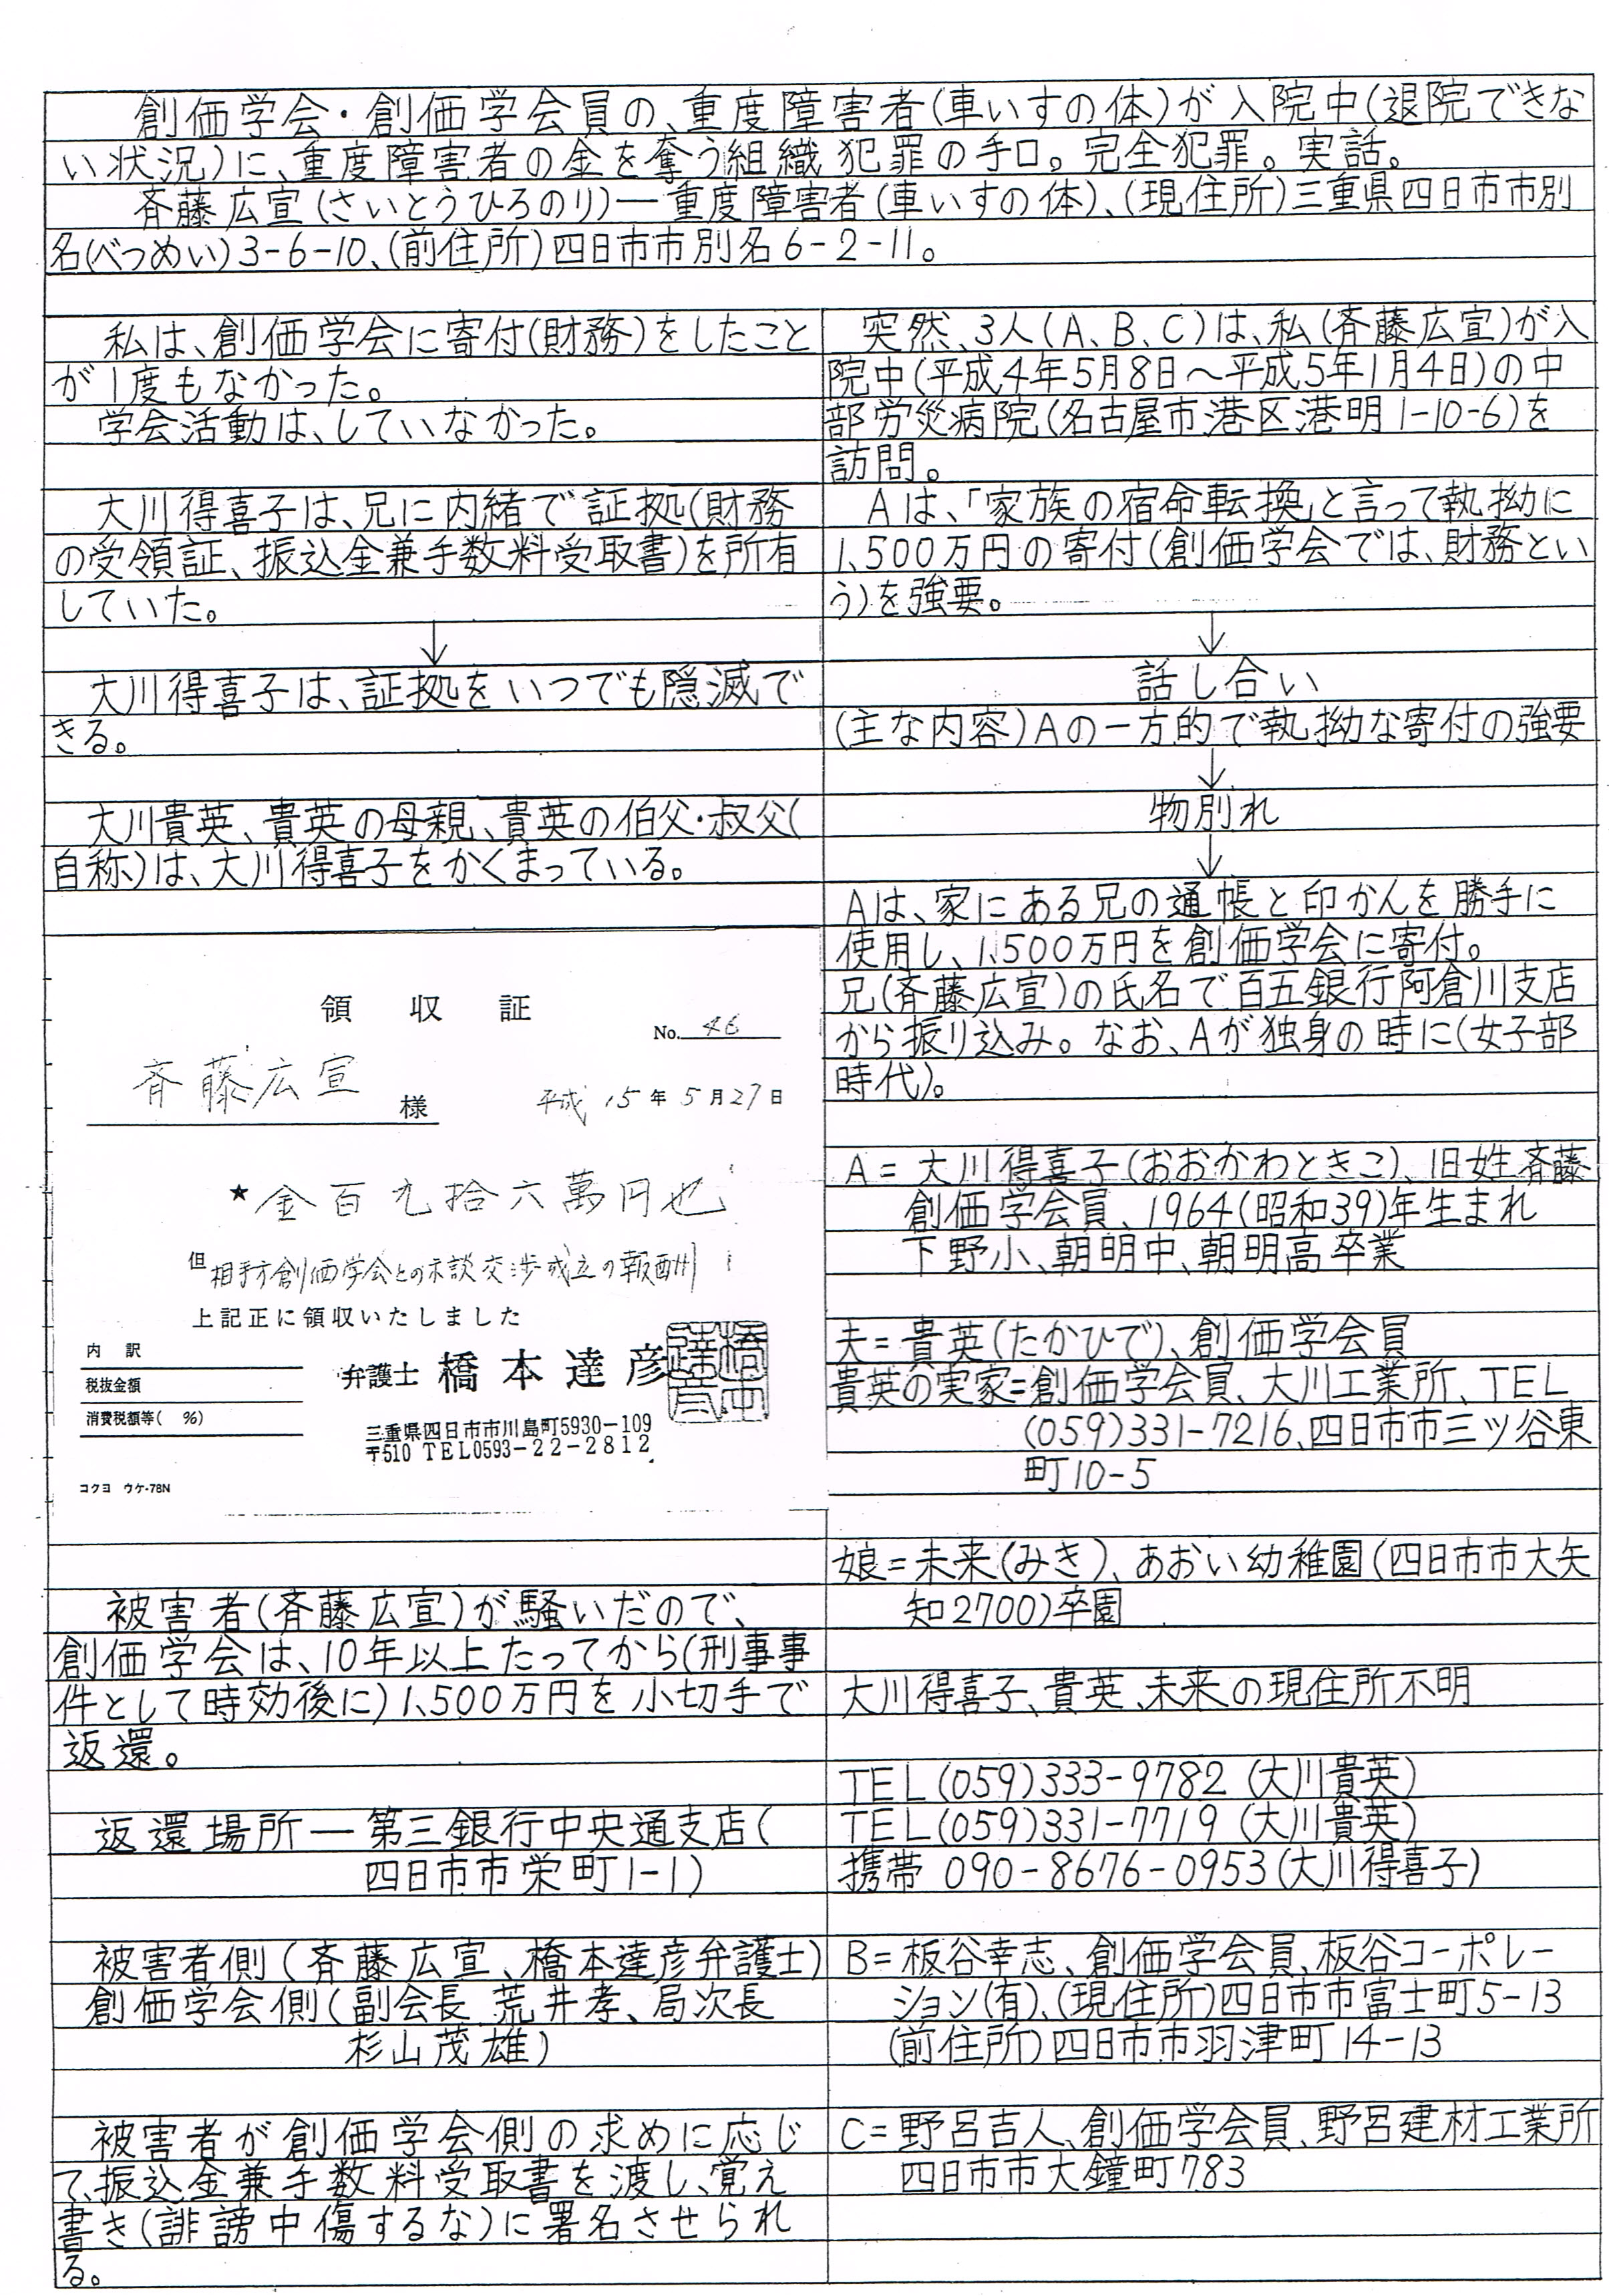 創価学会・創価学会員の、重度障害者(車いすの体)が入院中(退院できな
い状況)に、重度障害者の金を奪う組織犯罪の手口。完全犯罪。実話。
斉藤広宣(さいとうひろのり)ー重度障害者(車いすの体)、(現住所)三重県四日市市別
名(べつめい)3-6-10、(前住所)四日市市別名6-2-11。
私は、創価学会に寄付(財務)をしたこと
が1度もなかった。
学会活動は、していなかった。
大川得喜子は、兄に内緒で証拠(財務
の受領証、振込金兼手数料受取書)を所有
していた。
↓
大川得喜子は、証拠をいつでも隠滅で
きる。
大川貴英、貴英の母親、貴英の伯父・叔父(
自称)は、大川得喜子をかくまっている。
領収証
No. 46
斉藤広宣 様
平成15年5月27日
★金百九拾六萬円也
但 相手方創価学会との示談交渉成立の報酬
上記正に領収いたしました
内訳
税抜金額
消費税額等( %)
弁護士 橋本達彦
橋本達彦
三重県四日市市川島町5930-109
〒510 TEL0593-22-2812
コクヨ ウケ-78N
被害者(斉藤広宣)が騒いだので、
創価学会は、10年以上たってから(刑事事
件として時効後に)1,500万円を小切手で
返還。
返還場所ー第三銀行中央通支店(
四日市市栄町1-1)
被害者側(斉藤広宣、橋本達彦弁護士)
創価学会側(副会長 荒井孝、局次長
杉山茂雄)
被害者が創価学会側の求めに応じ
て、振込金兼手数料受取書を渡し、覚え
書き(誹謗中傷するな)に署名させられ
る。
突然、3人(A、B、C)は、私(斉藤広宣)が入
院中(平成4年5月8日〜平成5年1月4日)の中
部労災病院(名古屋市港区港明1-10-6)を
訪問。
Aは、「家族の宿命転換」と言って執拗に
1,500万円の寄付(創価学会では、財務とい
う)を強要。
↓
話し合い
(主な内容)Aの一方的で執拗な寄付の強要
↓
物別れ
↓
Aは、家にある兄の通帳と印かんを勝手に
使用し、1,500万円を創価学会に寄付。
兄(斉藤広宣)の氏名で百五銀行阿倉川支店
から振り込み。なお、Aが独身の時に(女子部
時代)。
A=大川得喜子(おおかわときこ)、旧姓斉藤
創価学会員、1964(昭和39)年生まれ
下野小、朝明中、朝明高卒業
夫=貴英(たかひで)、創価学会員
貴英の実家=創価学会員、大川工業所、TEL
(059)331-7216、四日市市三ツ谷東
町10-5
娘=未来(みき)、あおい幼稚園(四日市市大矢
知2700)卒園
大川得喜子、貴英、未来の現住所不明
TEL(059)333-9782 (大川貴英)
TEL(059)331-7719 (大川貴英)
携帯 090-8676-0953(大川得喜子)
B=板谷幸志、創価学会員、板谷コーポレー
ション(有)、(現住所)四日市市富士町5-13
(前住所)四日市市羽津町14-13
C=野呂吉人、創価学会員、野呂建材工業所
四日市市大鐘町783